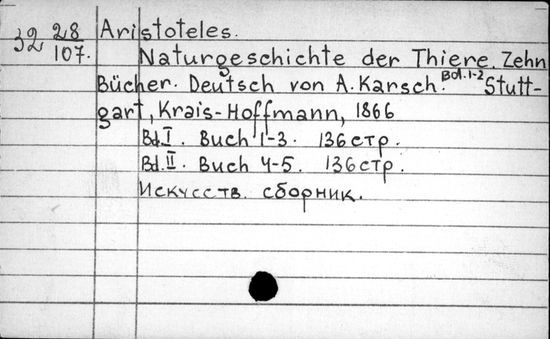 32 28/107. Aristoteles.
Naturgeschichte der Thiere. Zehn
Bücher. Deutsch von A. Karsch. Bd. 1-2 Stutt-
gart, Krais-Hoffmann, 1866
Bd. I. Buch 1-3. 136 стр.
Bd. II. Buch 4-5. 136 стр.
Искусств. сборник.